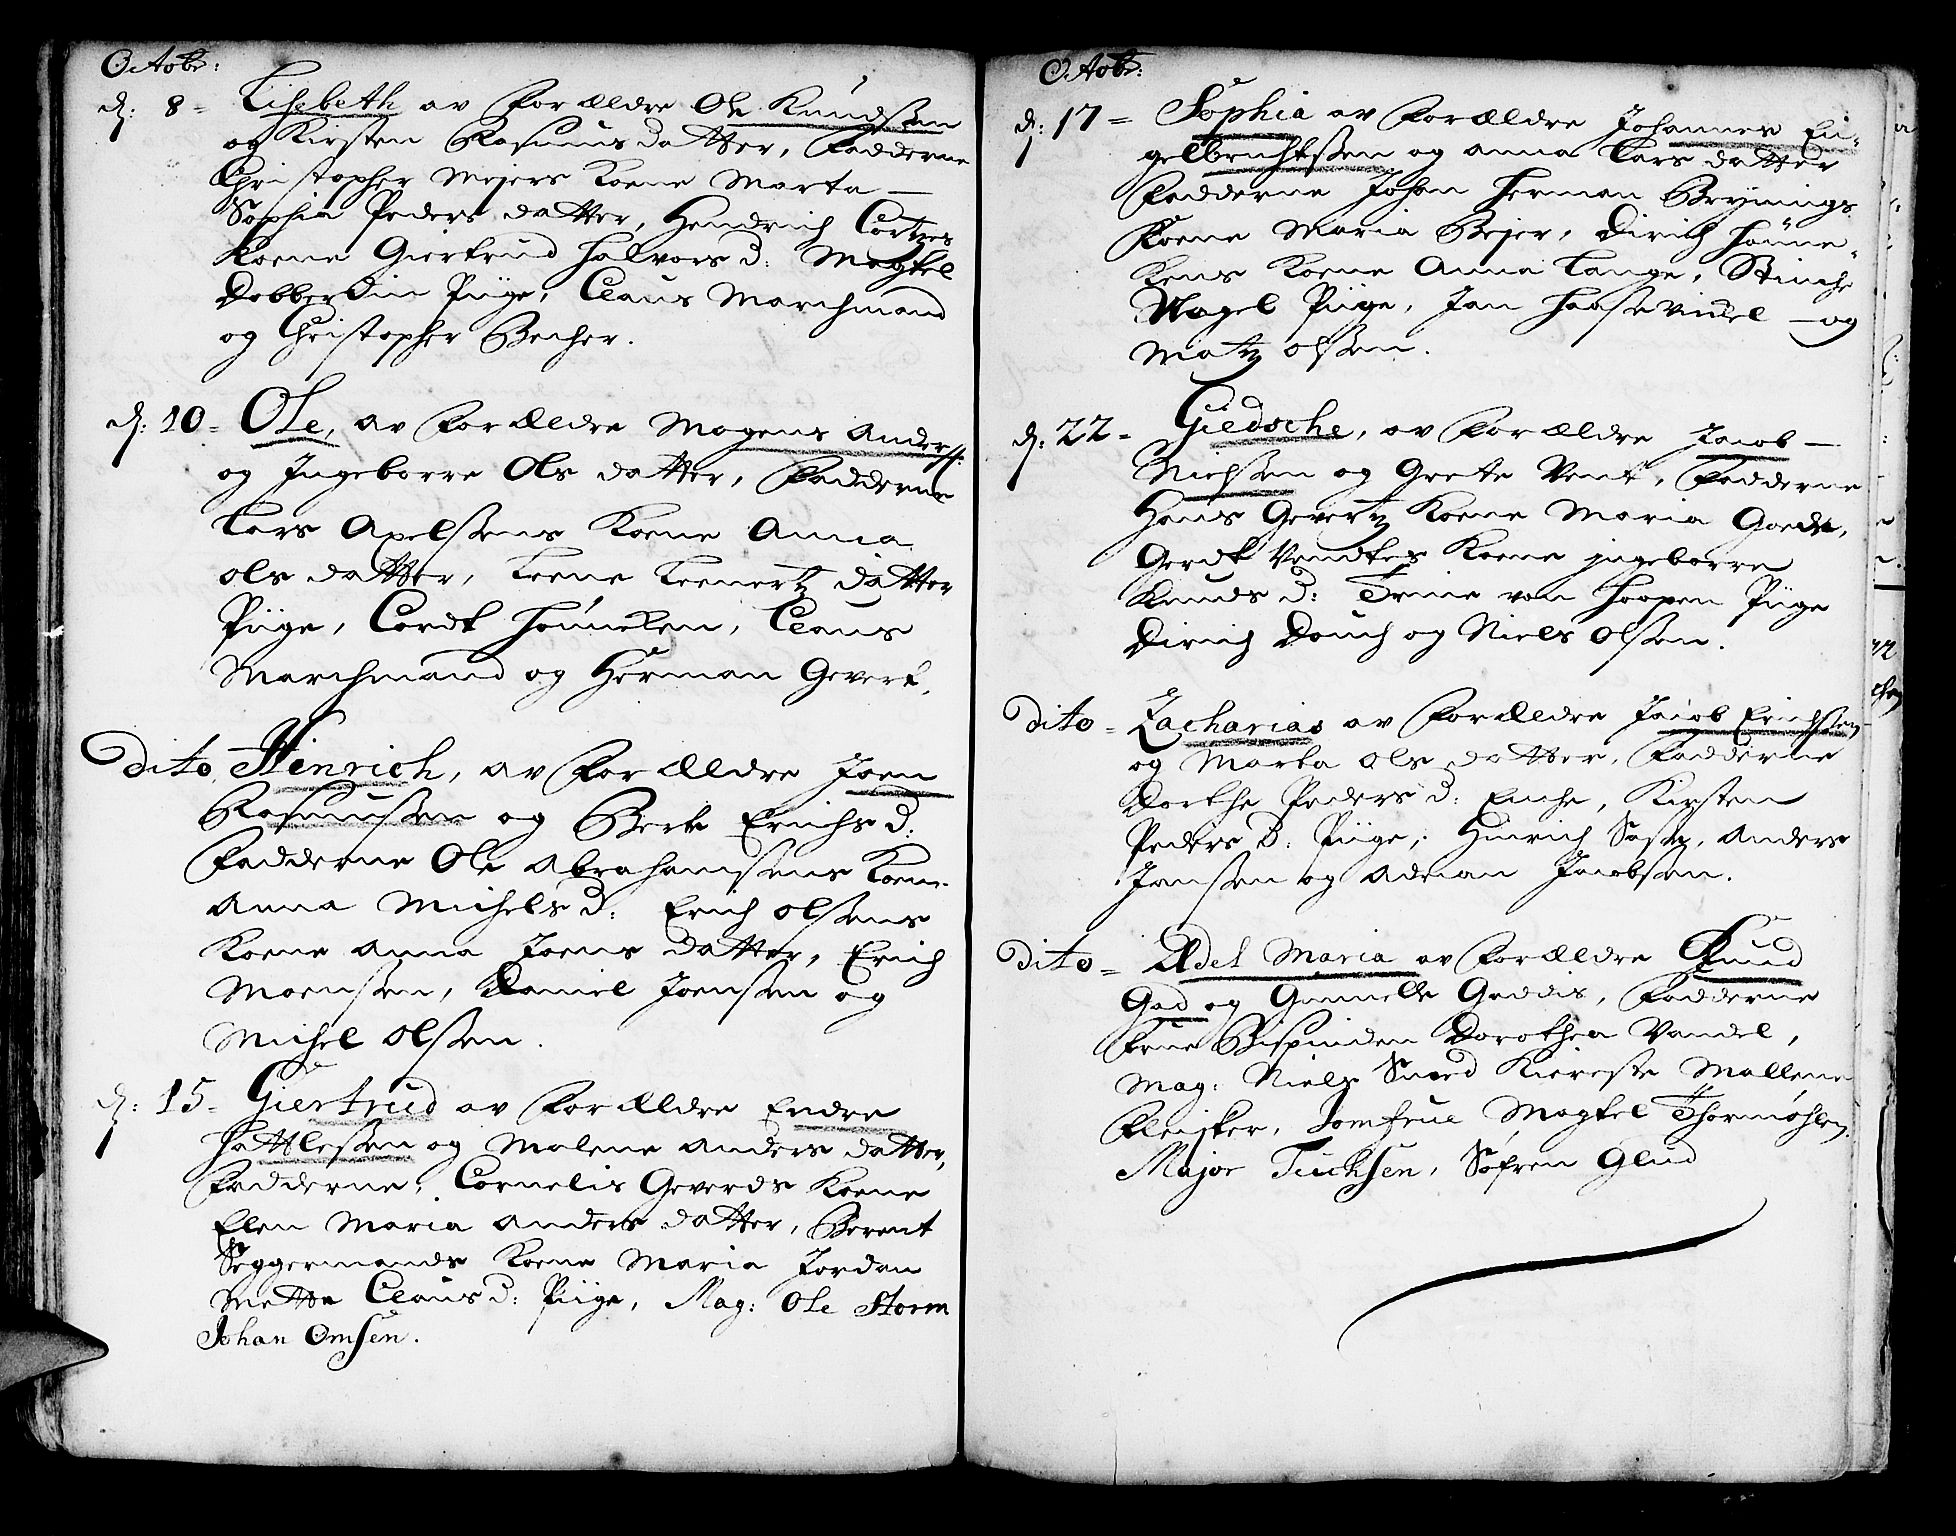 Octobr:
d: 8 = Lisebeth av Forældre Ole Knudsen
og Kirsten Rasmus datter, Fadderne
Christopher Mejers Koene Marta —
Sophia Peders datter, Hendrich Cortzes
Koene Giertrud Halvors d: Magtel
Dobberdin Piige, Claus Marchmand
og Christopher Becher.
d: 10 = Ole, av Forældre Mogens Anders:
og Ingeborre Ols datter, Fadderne
Lars Axelsens Koene Anna
ols datter, Leene Leenertz datter
Piige, Cordt Hönneken, Claus
Marchmand og Herman Gevert.
Dito Hinrich, av Forældre Joen
Rasmussen og Berte Erichs d:
Fadderne Ole Abrahamsens Koene
Anna Michels d: Erich olsens
Koene Anna Joens datter, Erich
Moensen, Daniel Joensen og
Michel olsen.
d: 15 = Giertrud av Forældre Endre
Hattlesen og Malene Anders datter,
Fadderne, Cornelis Geverds Koene
Elen Maria Anders datter, Berent
Seggermands Koene Maria Jordan
Mette Claus d: Piige, Mag: Ole Storm
Johan Omsen.
Octobr:
d: 17 = Sophia av Forældre Johannes En-
gelbrechtsen og Anna Lars datter
Fadderne Johan Herman Brynings
Koene Maria Bejer, Dirich Hönne-
kens Koene Anna Lange, Stinche
Nagel Piige, Jan Haasewindel — og
Matz olsen.
d: 22 = Giedsche, av Forældre Jacob —
Nielsen og Grete Vent, Fadderne
Hans Gevertz Koene Maria Goede,
Gerdt Vendtes Koene jngeborre
Knuds d: Trine von Hoopen Piige
Dirich Douch og Niels Olsen.
Dito = Zacharias av Forældre Jacob Erichsen
og Marta ols datter, Fadderne
Dorthe Peders d: Enche, Kirsten
Peders D: Piige, Hinrich Sasse, Anders
Jansen og Adrian Jacobsen.
Dito = Adel Maria av Forældre Knud
Gad og Gunnelle Gaddis, Fadderne
Frue Bispinden Dorothea Vandel,
Mag: Niels Smed Kiereste Mallene
Fleisker, Jomfrue Magtel Thormøhlen
Major Tuchsen, Söfren Glud